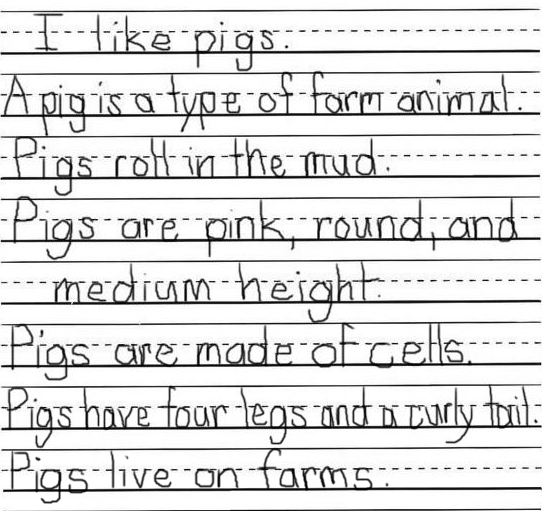 I like pigs.
A pig is a type of farm animal.
Pigs roll in the mud.
Pigs are pink, round, and
medium height.
Pigs are made of cells.
Pigs have four legs and a curly tail.
Pigs live on farms.